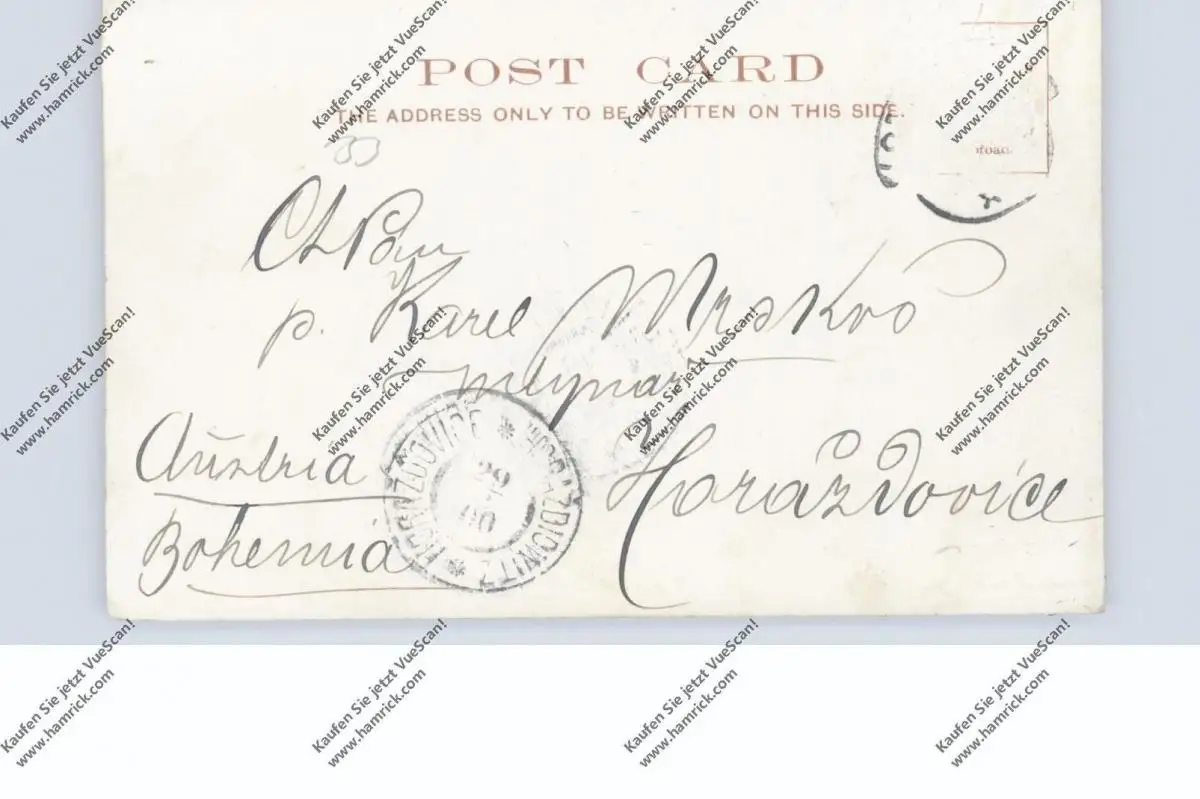 POST CARD
THE ADDRESS ONLY TO BE WRITTEN ON THIS SIDE.
33
Ct Pan
p. Karel Mrskoš
mlynar
Austria
Horažďovice
Bohemia
HORAŽĎOVICE * HORAŽDIOWITZ *
Kaufen Sie jetzt VueScan!
www.hamrick.com